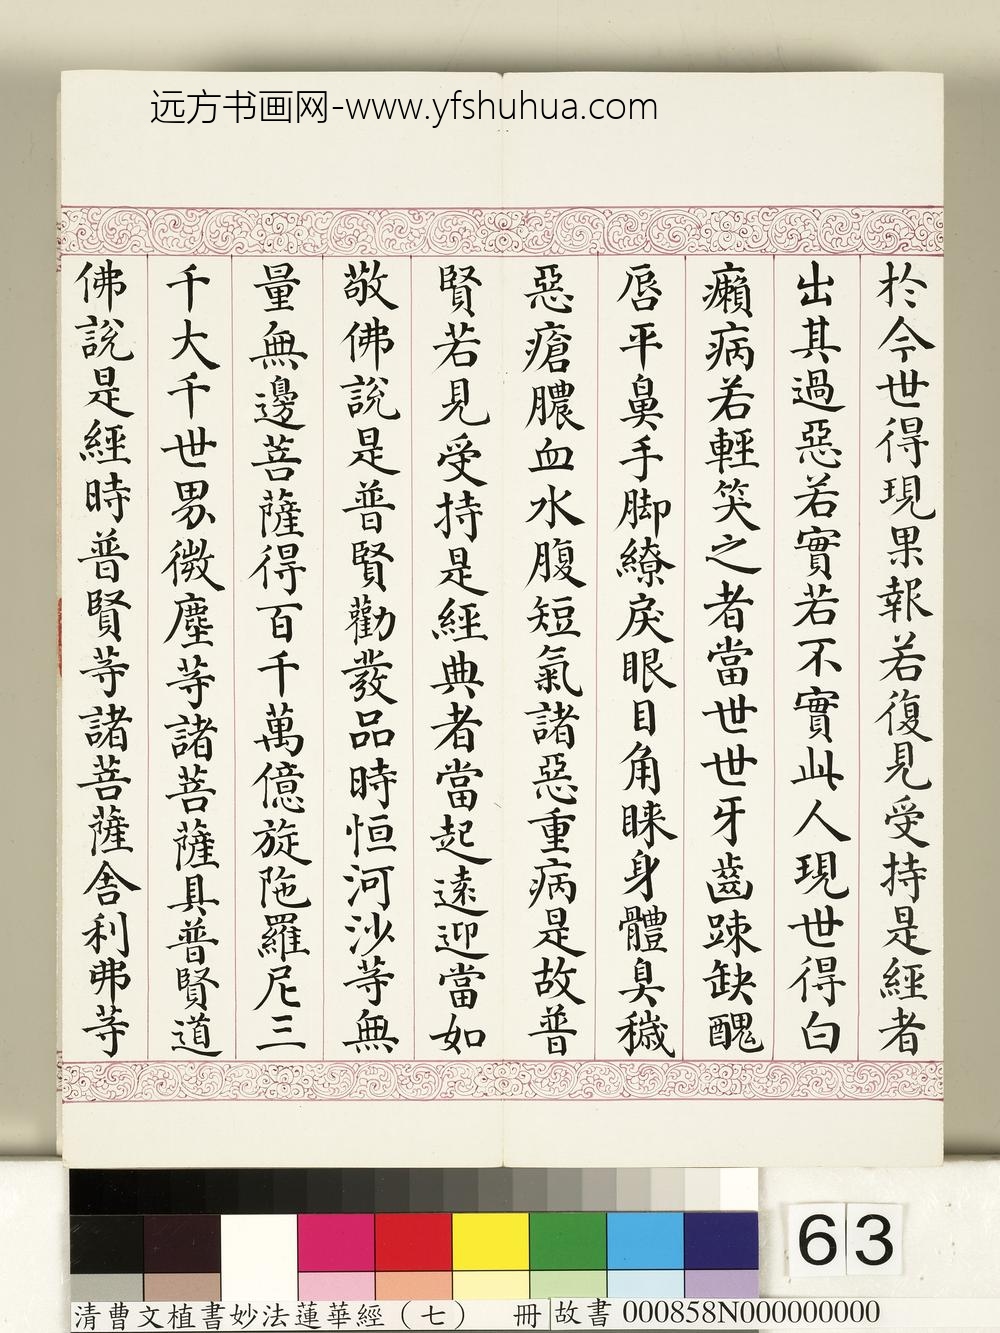 远方书画网-www.yfshuhua.com
於今世得現果報若復見受持是經者
出其過惡若實若不實此人現世得白
癩病若輕笑之者當世世牙齒踈缺醜
唇平鼻手脚繚戾眼目角睞身體臭穢
惡瘡膿血水腹短氣諸惡重病是故普
賢若見受持是經典者當起遠迎當如
敬佛說是普賢勸發品時恒河沙等無
量無邊菩薩得百千萬億旋陁羅尼三
千大千世界微塵等諸菩薩具普賢道
佛說是經時普賢等諸菩薩舍利弗等
63
清曹文植書妙法蓮華經（七） 冊 故書 000858N000000000